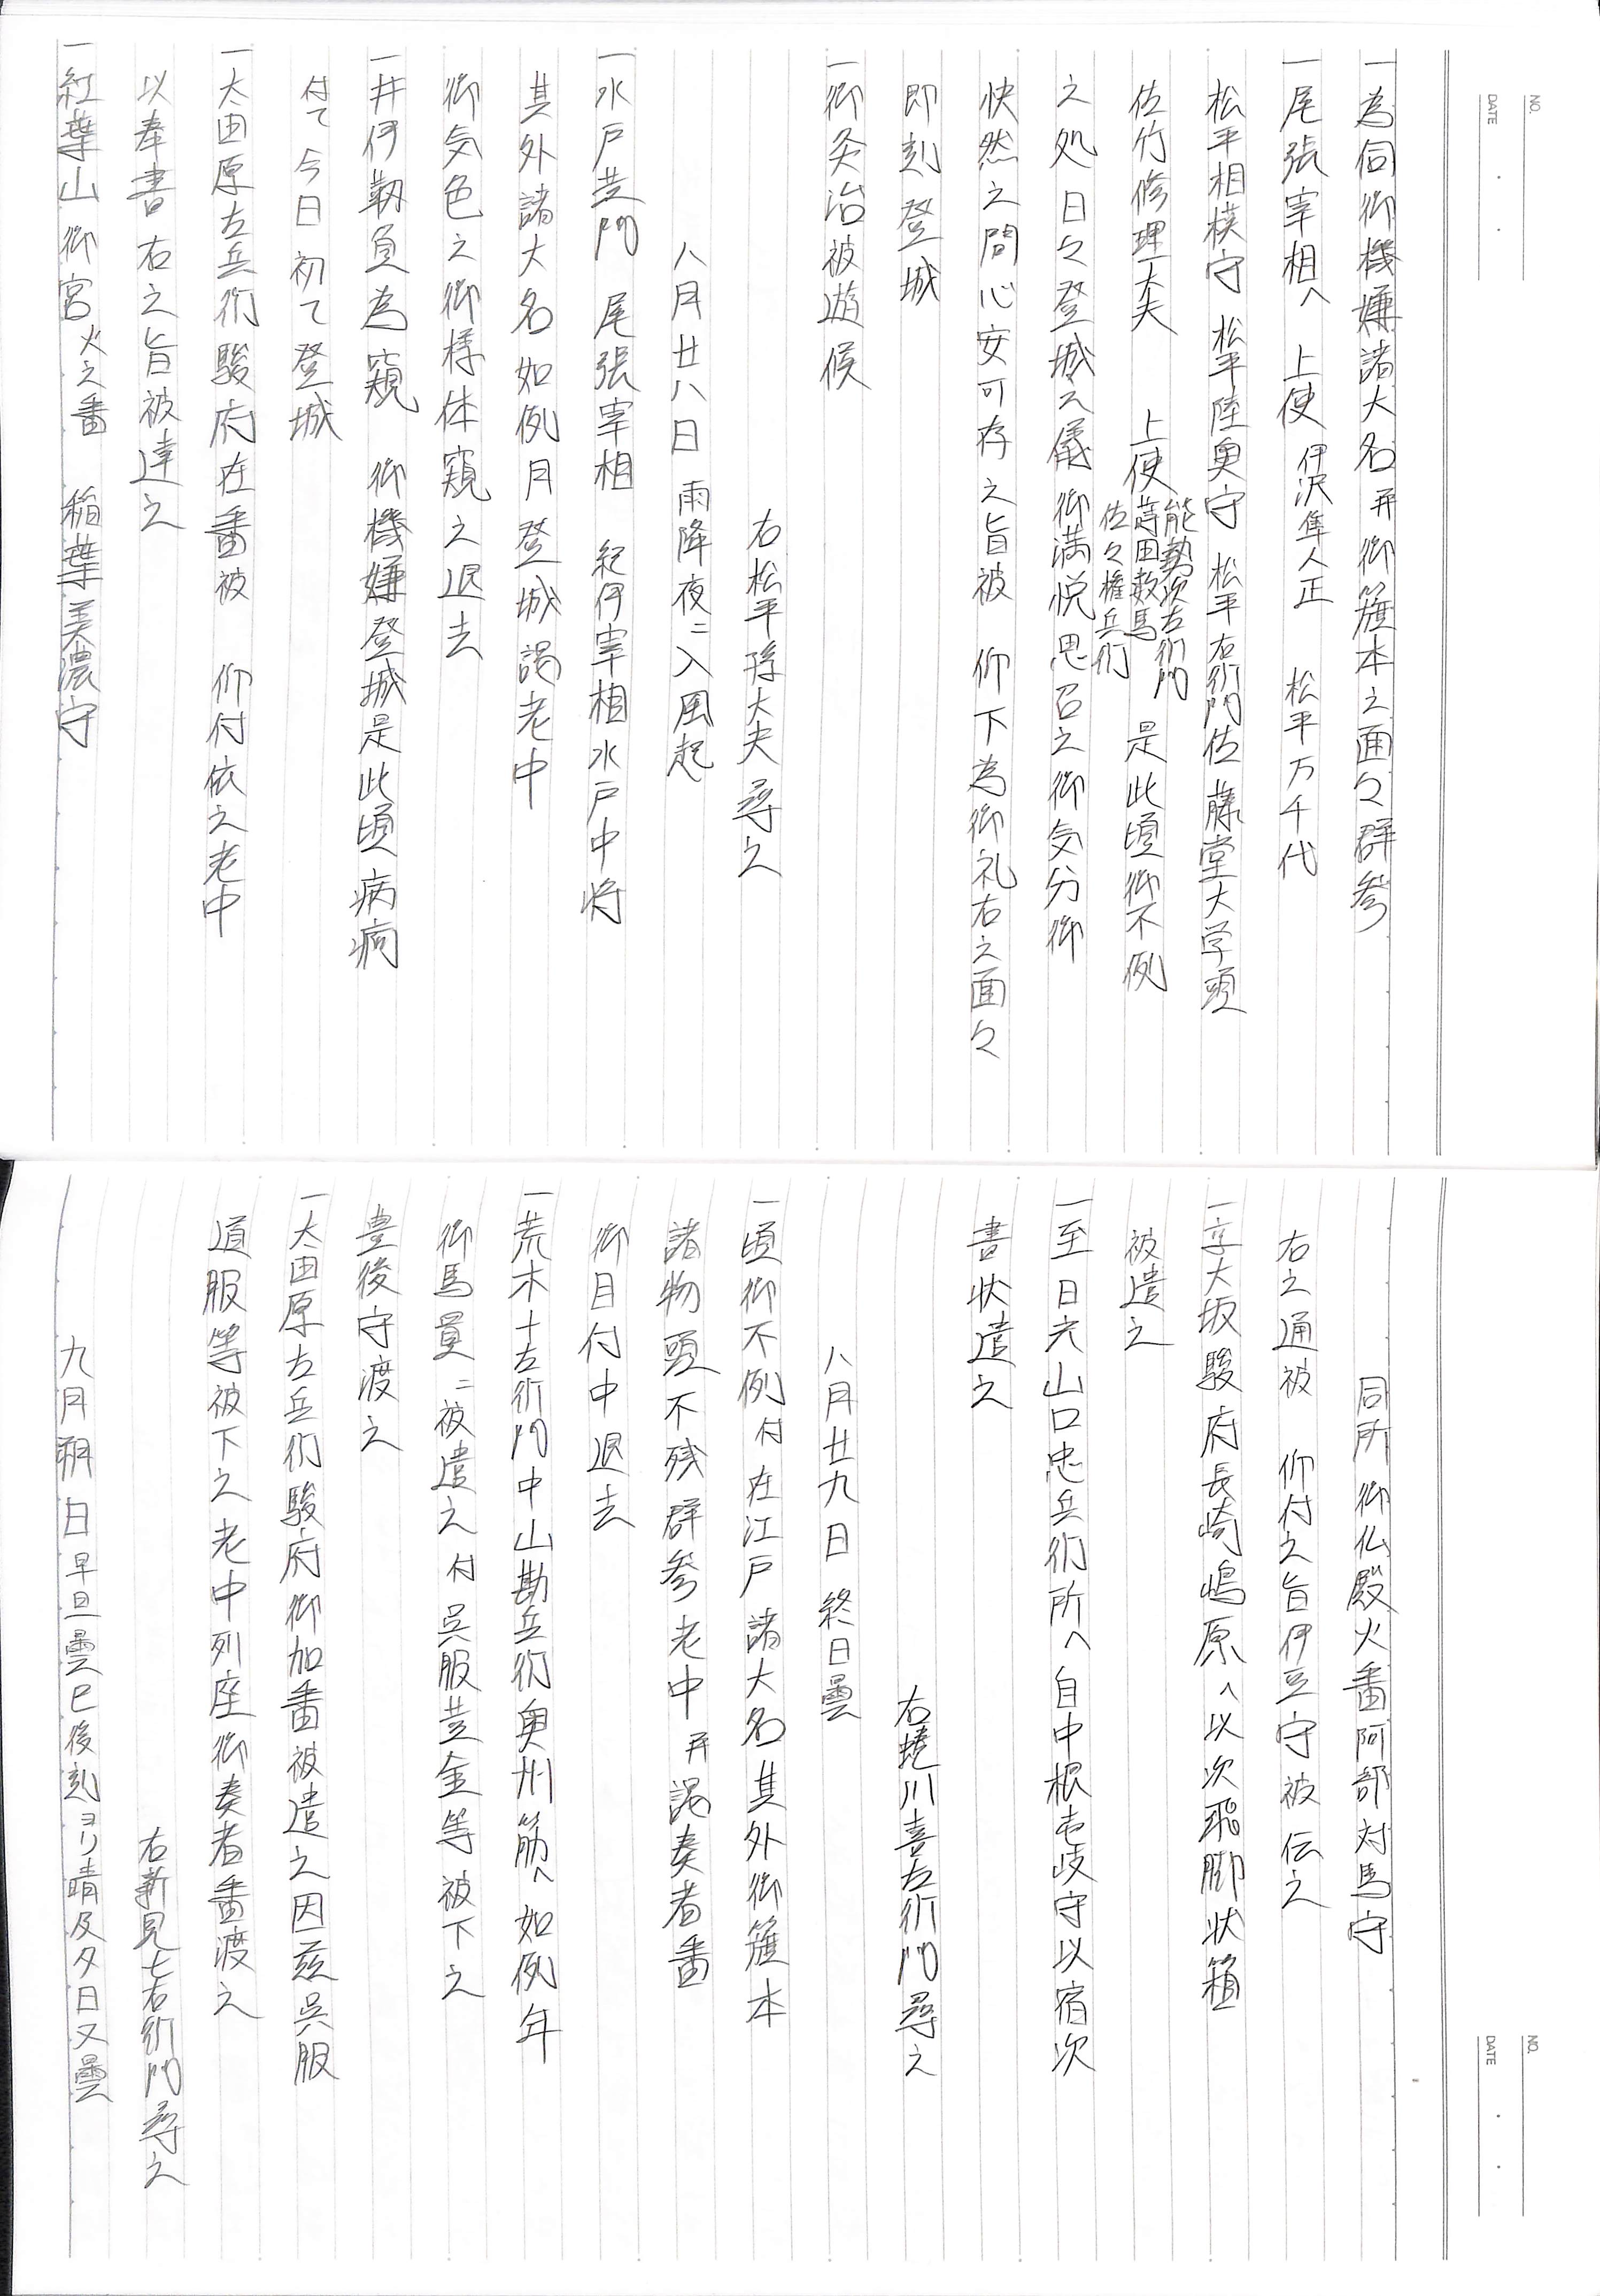 NO.
DATE
一為伺御機嫌諸大名并御籏本之面々群参
一尾張宰相へ 上使 伊沢隼人正 松平万千代
松平相模守 松平陸奥守 松平右衛門佐 藤堂大学頭
佐竹修理大夫 上使 能勢次左衛門 蒔田数馬 佐々権兵衛 是此頃御不例
之処日々登城之儀御満悦思召之御気分御
快然之間心安可存之旨被 仰下為御礼右之面々
即刻登城
一御灸治被遊候
右松平孫大夫尋之
八月廿八日 雨降夜ニ入風起
一水戸黄門 尾張宰相 紀伊宰相 水戸中将
其外諸大名如例月登城謁老中
御気色之御様体窺之退去
一井伊靱負為窺 御機嫌登城是此頃病痾
付て今日初て登城
一大田原左兵衛駿府在番被 仰付依之老中
以奉書右之旨被達之
一紅葉山御宮 火之番 稲葉美濃守
NO.
DATE
同所御仏殿火番 阿部対馬守
右之通被 仰付之旨伊豆守被伝之
一京大坂駿府長崎嶋原へ以次飛脚状箱
被遣之
一至日光山口忠兵衛所へ自中根壱岐守以宿次
書状遣之
右蜷川喜左衛門尋之
八月廿九日 終日曇
一頃御不例付在江戸諸大名其外御籏本
諸物頭不残群参老中并謁奏者番
御目付中退去
一荒木十左衛門中山勘兵衛奥州筋へ如例年
御馬買ニ被遣之付呉服黄金等被下之
豊後守渡之
一大田原左兵衛駿府御加番被遣之因茲呉服
道服等被下之老中列座御奏者番渡之
右新見七右衛門尋之
九月朔日 早旦曇巳後刻ヨリ晴及夕日又曇